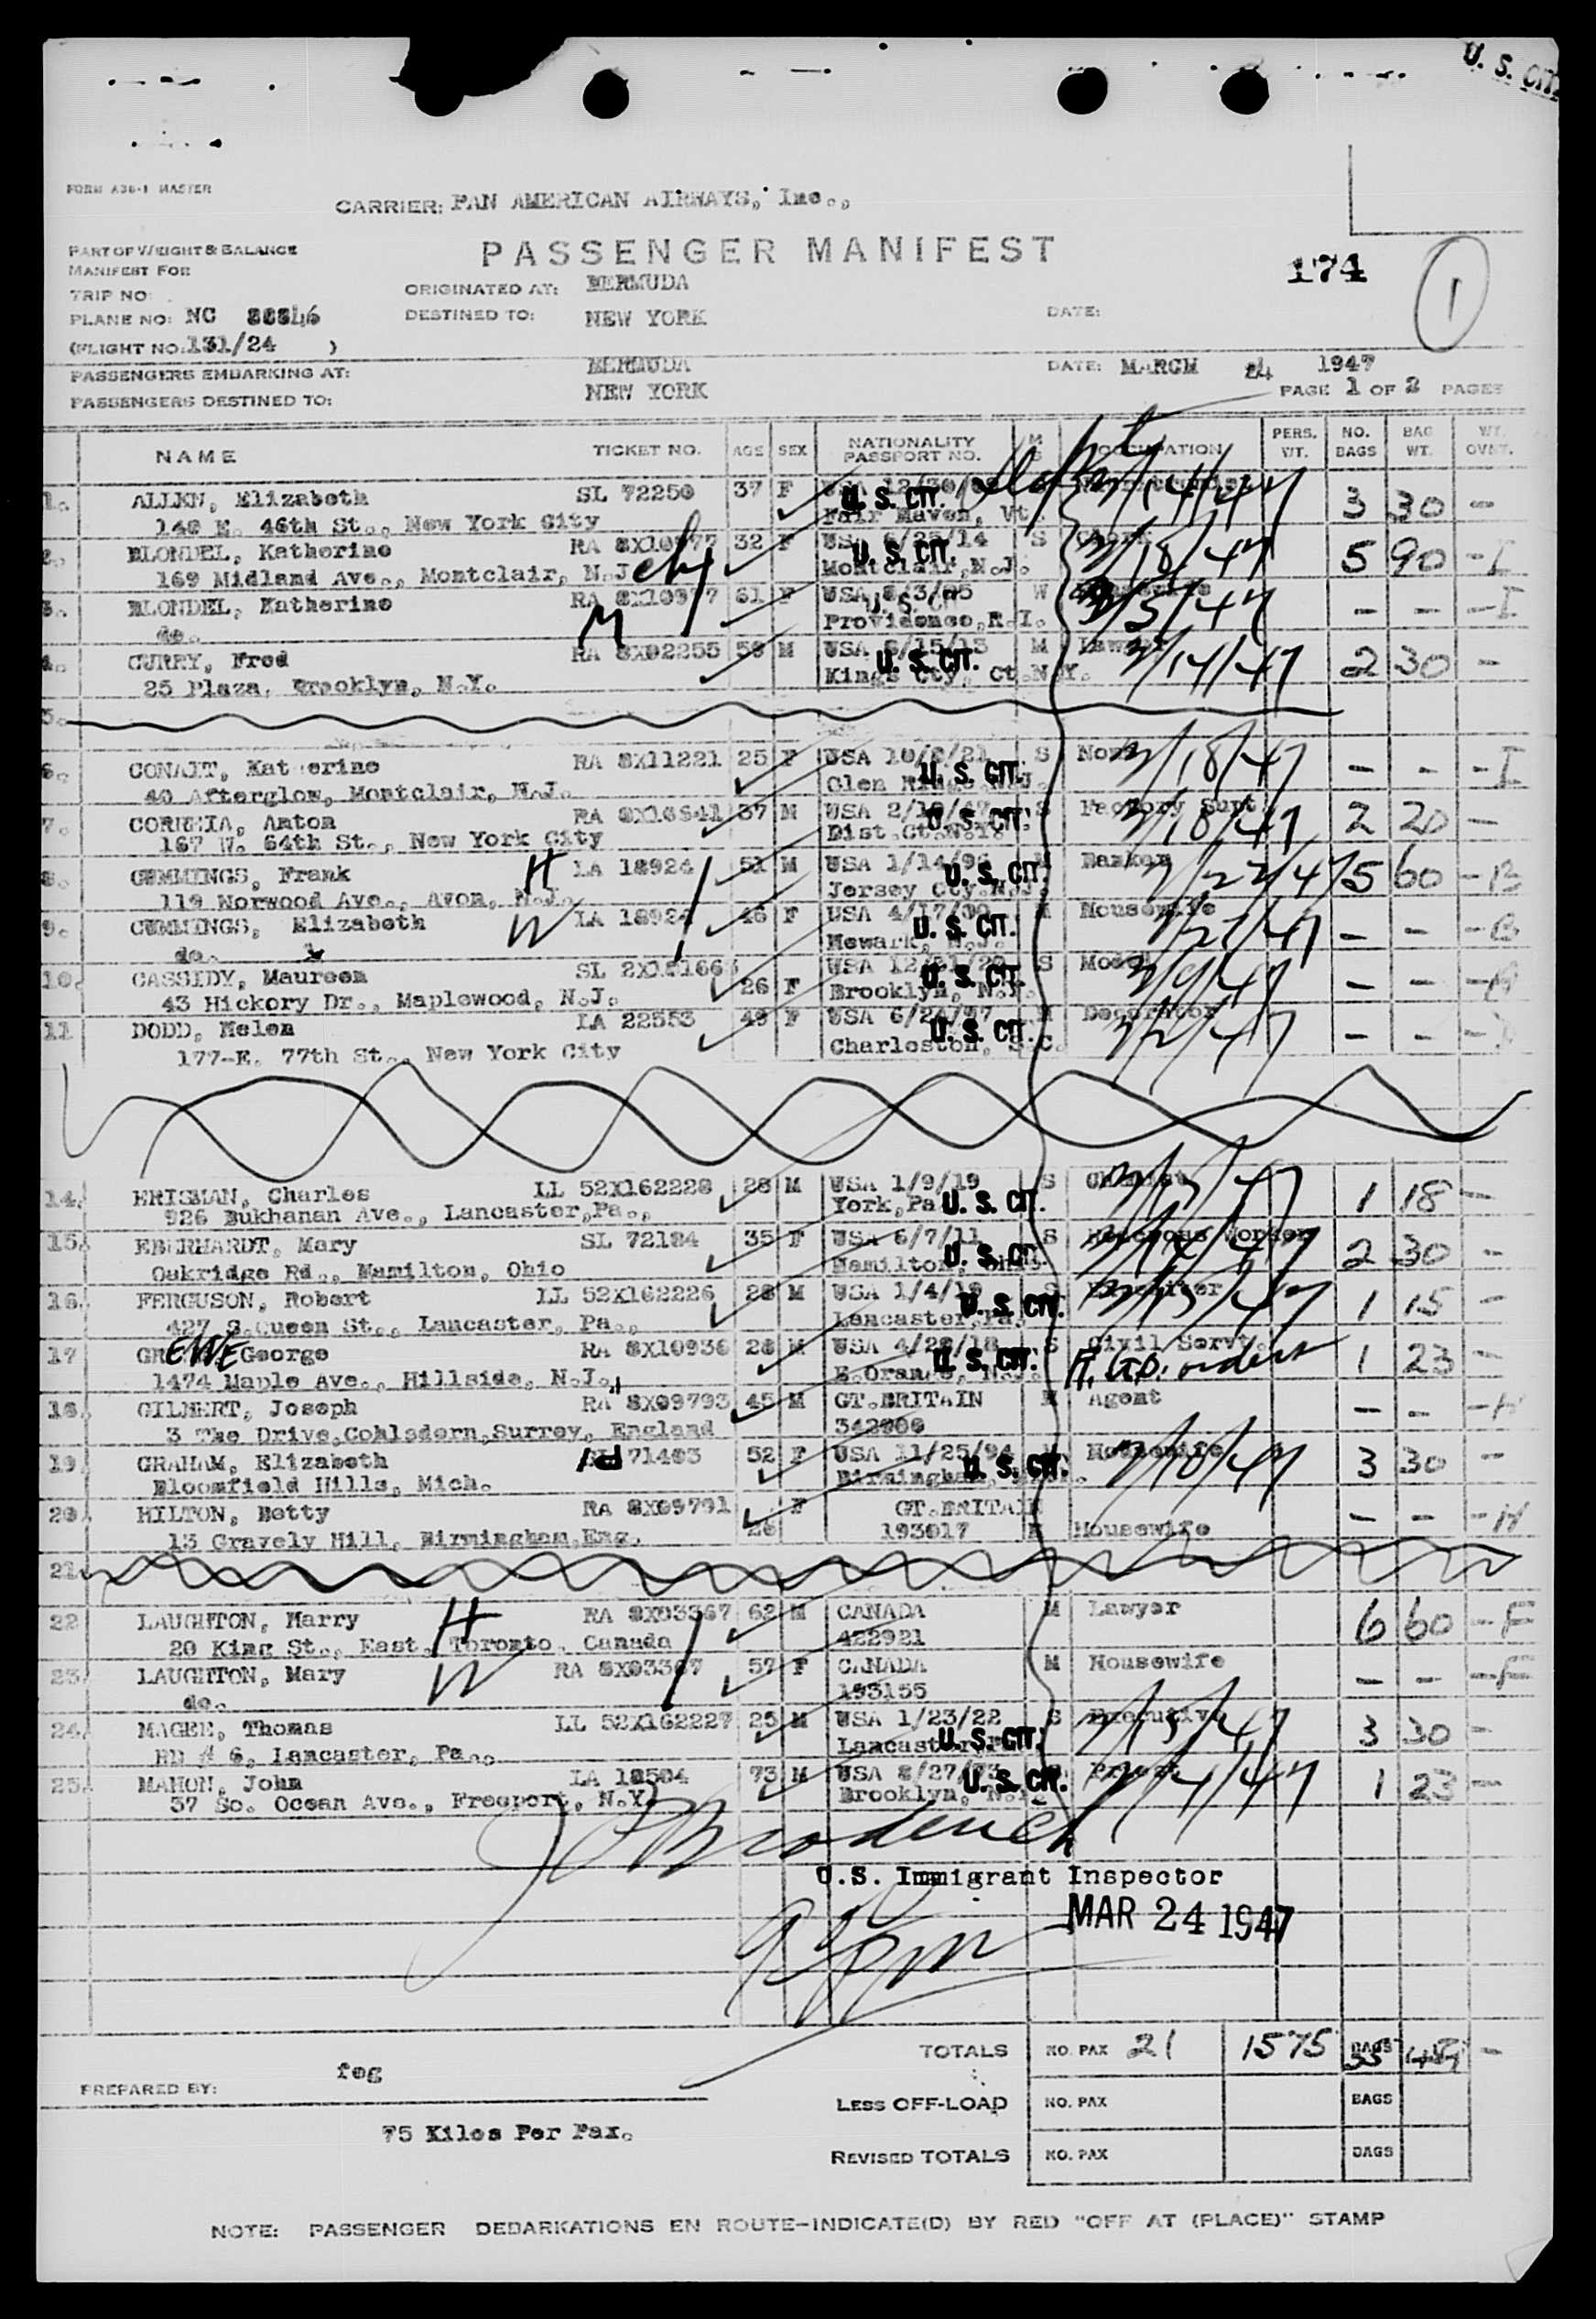 U. S. CIT
FORM A36-1 MASTER
CARRIER: PAN AMERICAN AIRWAYS, Inc.,
PART OF WEIGHT & BALANCE
MANIFEST FOR
PASSENGER MANIFEST
174
1
TRIP NO:
ORIGINATED AT: BERMUDA
PLANE NO: NC
DESTINED TO: NEW YORK
DATE:
(FLIGHT NO: 131/24 )
PASSENGERS EMBARKING AT: BERMUDA
DATE: MARCH 24 1947
PASSENGERS DESTINED TO: NEW YORK
PAGE 1 OF 2 PAGES
NAME TICKET NO. AGE SEX NATIONALITY PASSPORT NO. M S OCCUPATION PERS. WT. NO. BAGS BAG WT. WT. OVWT.
1. ALLEN, Elizabeth SL 72250 37 F USA U. S. CIT. 3/14/47 3 30 -
140 E. 46th St., New York City Fair Haven, Vt.
2. BLONDEL, Katherine RA 8X10977 32 F USA 6/25/14 U. S. CIT. S 3/18/47 5 90 - I
169 Midland Ave., Montclair, N.J. ch Montclair, N.J.
3. BLONDEL, Katherine RA 8X10977 61 F USA U. S. CIT W 3/5/47 - - - I
do. M Providence, R.I.
4. CURRY, Fred RA 8X02255 M USA U. S. CIT. M Lawyer 3/14/47 2 30 -
25 Plaza, Brooklyn, N.Y. Kings Cty, Ct. N.Y.
5.
6. CONAIT, Katherine RA 8X11221 25 F USA U. S. CIT. S None 3/18/47 - - - I
40 Afterglow, Montclair, N.J. Glen Ridge N.J.
7. CORREIA, Anton RA 37 M USA U. S. CIT. S Factory Supt. 3/18/47 2 20 -
167 W. 64th St., New York City Dist. Ct. N.Y.
8. CUMMINGS, Frank H LA 18924 51 M USA U. S. CIT. M Banker 5 60 - B
119 Norwood Ave., Avon, N.J. Jersey Cty. N.J.
9. CUMMINGS, Elizabeth W LA 18924 46 F USA U. S. CIT. M Housewife - - - B
do. Newark, N.J.
10. CASSIDY, Maureen SL 26 F USA U. S. CIT. S - - -
43 Hickory Dr., Maplewood, N.J. Brooklyn, N.Y.
11 DODD, Helen LA 22553 49 F USA U. S. CIT. M Decorator - - -
177-E. 77th St., New York City Charleston, S.C.
14. ERISMAN, Charles LL 52X162228 28 M USA 1/9/19 U. S. CIT. S Chemist 1 18 -
926 Bukhanan Ave., Lancaster, Pa., York, Pa
15. EBERHARDT, Mary SL 72184 35 F USA 6/7/11 U. S. CIT. S Worker 2 30 -
Oakridge Rd., Hamilton, Ohio Hamilton,
16. FERGUSON, Robert LL 52X162226 28 M USA 1/4/19 U. S. CIT. S 3/13/47 1 15 -
427 S.Queen St., Lancaster, Pa., Lancaster, Pa.
17 EWE George RA 8X10936 28 M USA 4/28/18 U. S. CIT. S Civil Servt. orders 1 23 -
1474 Maple Ave., Hillside, N.J. E.Orange, N.J.
18. GILBERT, Joseph RA 8X09793 45 M GT.BRITAIN M Agent - - - H
3 The Drive, Cohlsdorn, Surrey, England 342000
19. GRAHAM, Elizabeth 71403 52 F USA 11/25/94 U. S. CIT. Housewife 3/18/47 3 30 -
Bloomfield Hills, Mich. Birmingham,
20. HILTON, Betty RA 8X09791 26 F GT.BRITAIN - - - H
13 Gravely Hill, Birmingham, Eng. 193017 M Housewife
21.
22 LAUGHTON, Harry H RA 8X03367 62 M CANADA M Lawyer 6 60 - F
20 King St., East, Toronto, Canada 422921
23. LAUGHTON, Mary W RA 8X03367 57 F CANADA M Housewife - - - F
do. 193155
24. MAGEE, Thomas LL 52X162227 25 M USA 1/23/22 U. S. CIT. S Executive 3/13/47 3 30 -
RD # 6, Lancaster, Pa., Lancaster,
25. MAHON, John LA 18504 73 M USA 8/27/73 U. S. CIT. 3/4/47 1 23 -
37 So. Ocean Ave., Freeport, N.Y. Brooklyn, N.Y.
U.S. Immigrant Inspector
MAR 24 1947
TOTALS NO. PAX 21 1575 BAGS 35 -
feg
PREPARED BY:
LESS OFF-LOAD NO. PAX BAGS
75 Kilos Per Pax.
REVISED TOTALS NO. PAX BAGS
NOTE: PASSENGER DEBARKATIONS EN ROUTE-INDICATE(D) BY RED "OFF AT (PLACE)" STAMP